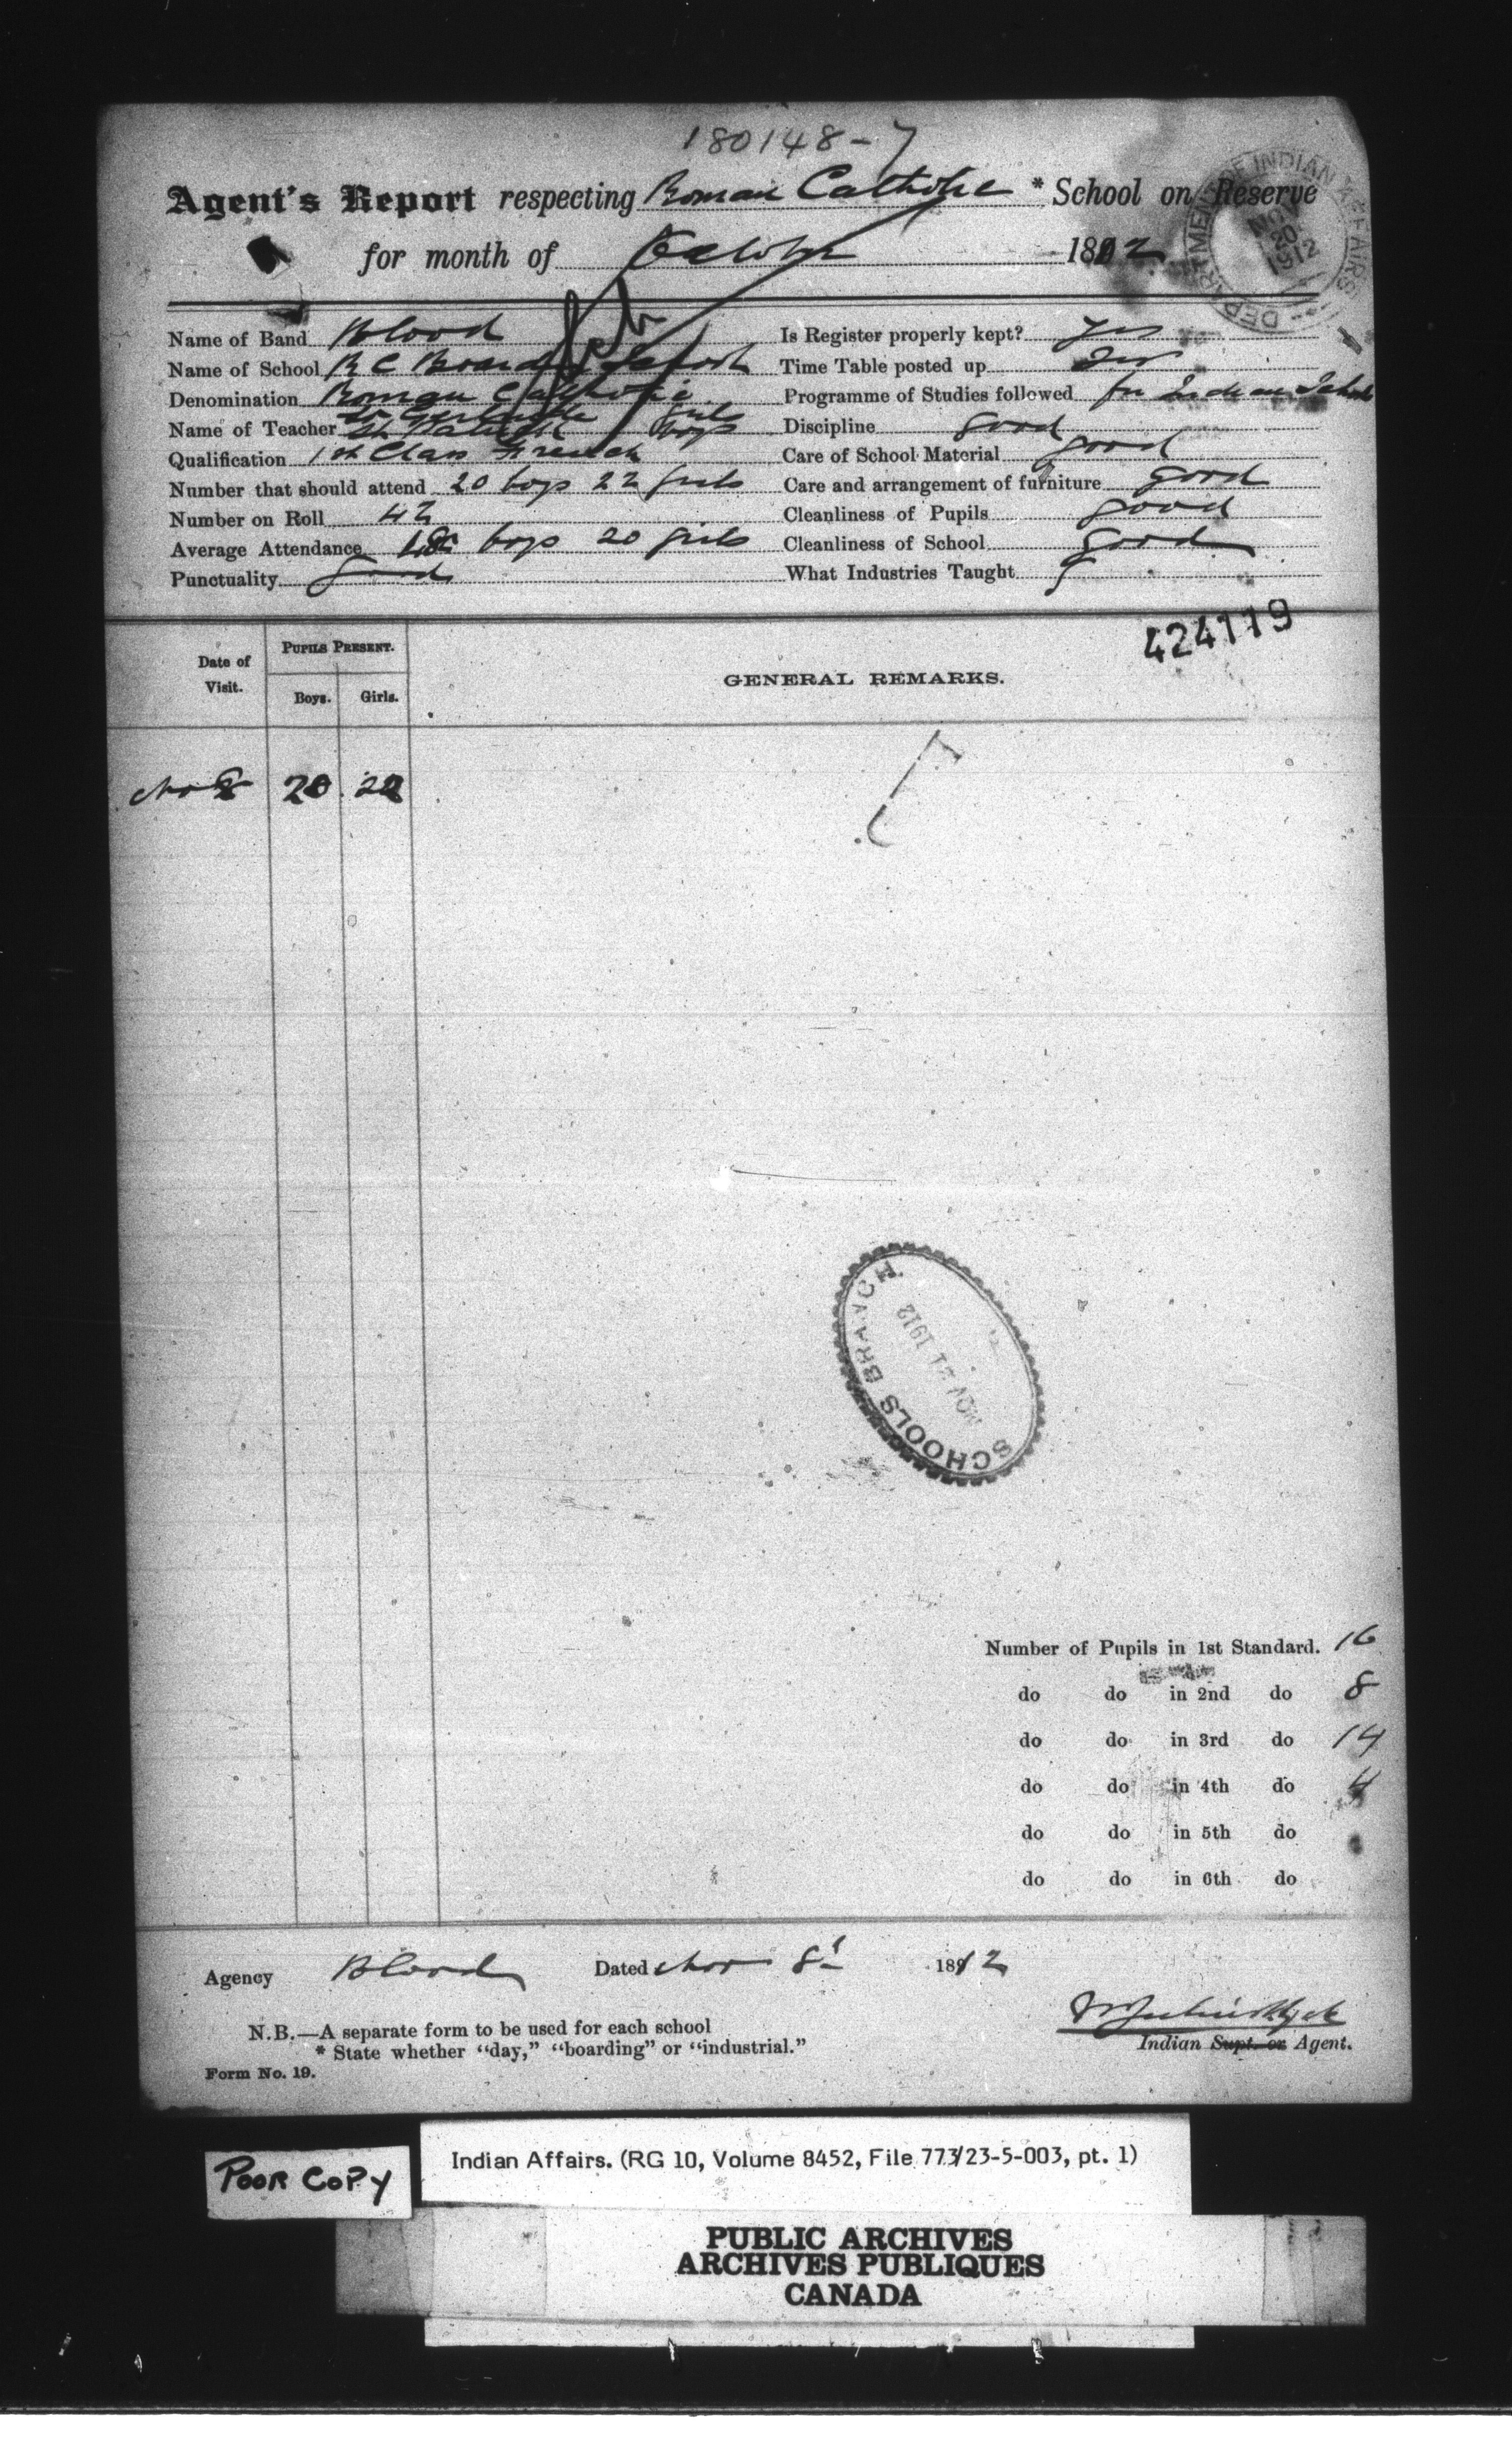 180148-7
Agent's Report respecting Roman Catholic * School on Reserve
for month of October 1912
DEPARTMENT INDIAN AFFAIRS
NOV 20 1912
Name of Band Blood
Name of School R C Board School
Denomination Roman Catholic
Sr Gertrude girls
Name of Teacher boys
Qualification 1st Class French
Number that should attend 20 boys 22 girls
Number on Roll 42
Average Attendance 18 boys 20 girls
Punctuality good
Is Register properly kept? yes
Time Table posted up yes
Programme of Studies followed for Indian Schools
Discipline good
Care of School Material good
Care and arrangement of furniture good
Cleanliness of Pupils good
Cleanliness of School good
What Industries Taught
424119
Date of Visit.
PUPILS PRESENT.
Boys. Girls.
GENERAL REMARKS.
Nov 8 20 22
SCHOOLS BRANCH
NOV 21 1912
Number of Pupils in 1st Standard. 16
do do in 2nd do 8
do do in 3rd do 14
do do in 4th do 4
do do in 5th do
do do in 6th do
Agency Blood Dated Nov 8 1912
N.B.—A separate form to be used for each school
* State whether "day," "boarding" or "industrial."
Form No. 19.
Indian Supt. or Agent.
POOR COPY
Indian Affairs. (RG 10, Volume 8452, File 773/23-5-003, pt. 1)
PUBLIC ARCHIVES
ARCHIVES PUBLIQUES
CANADA